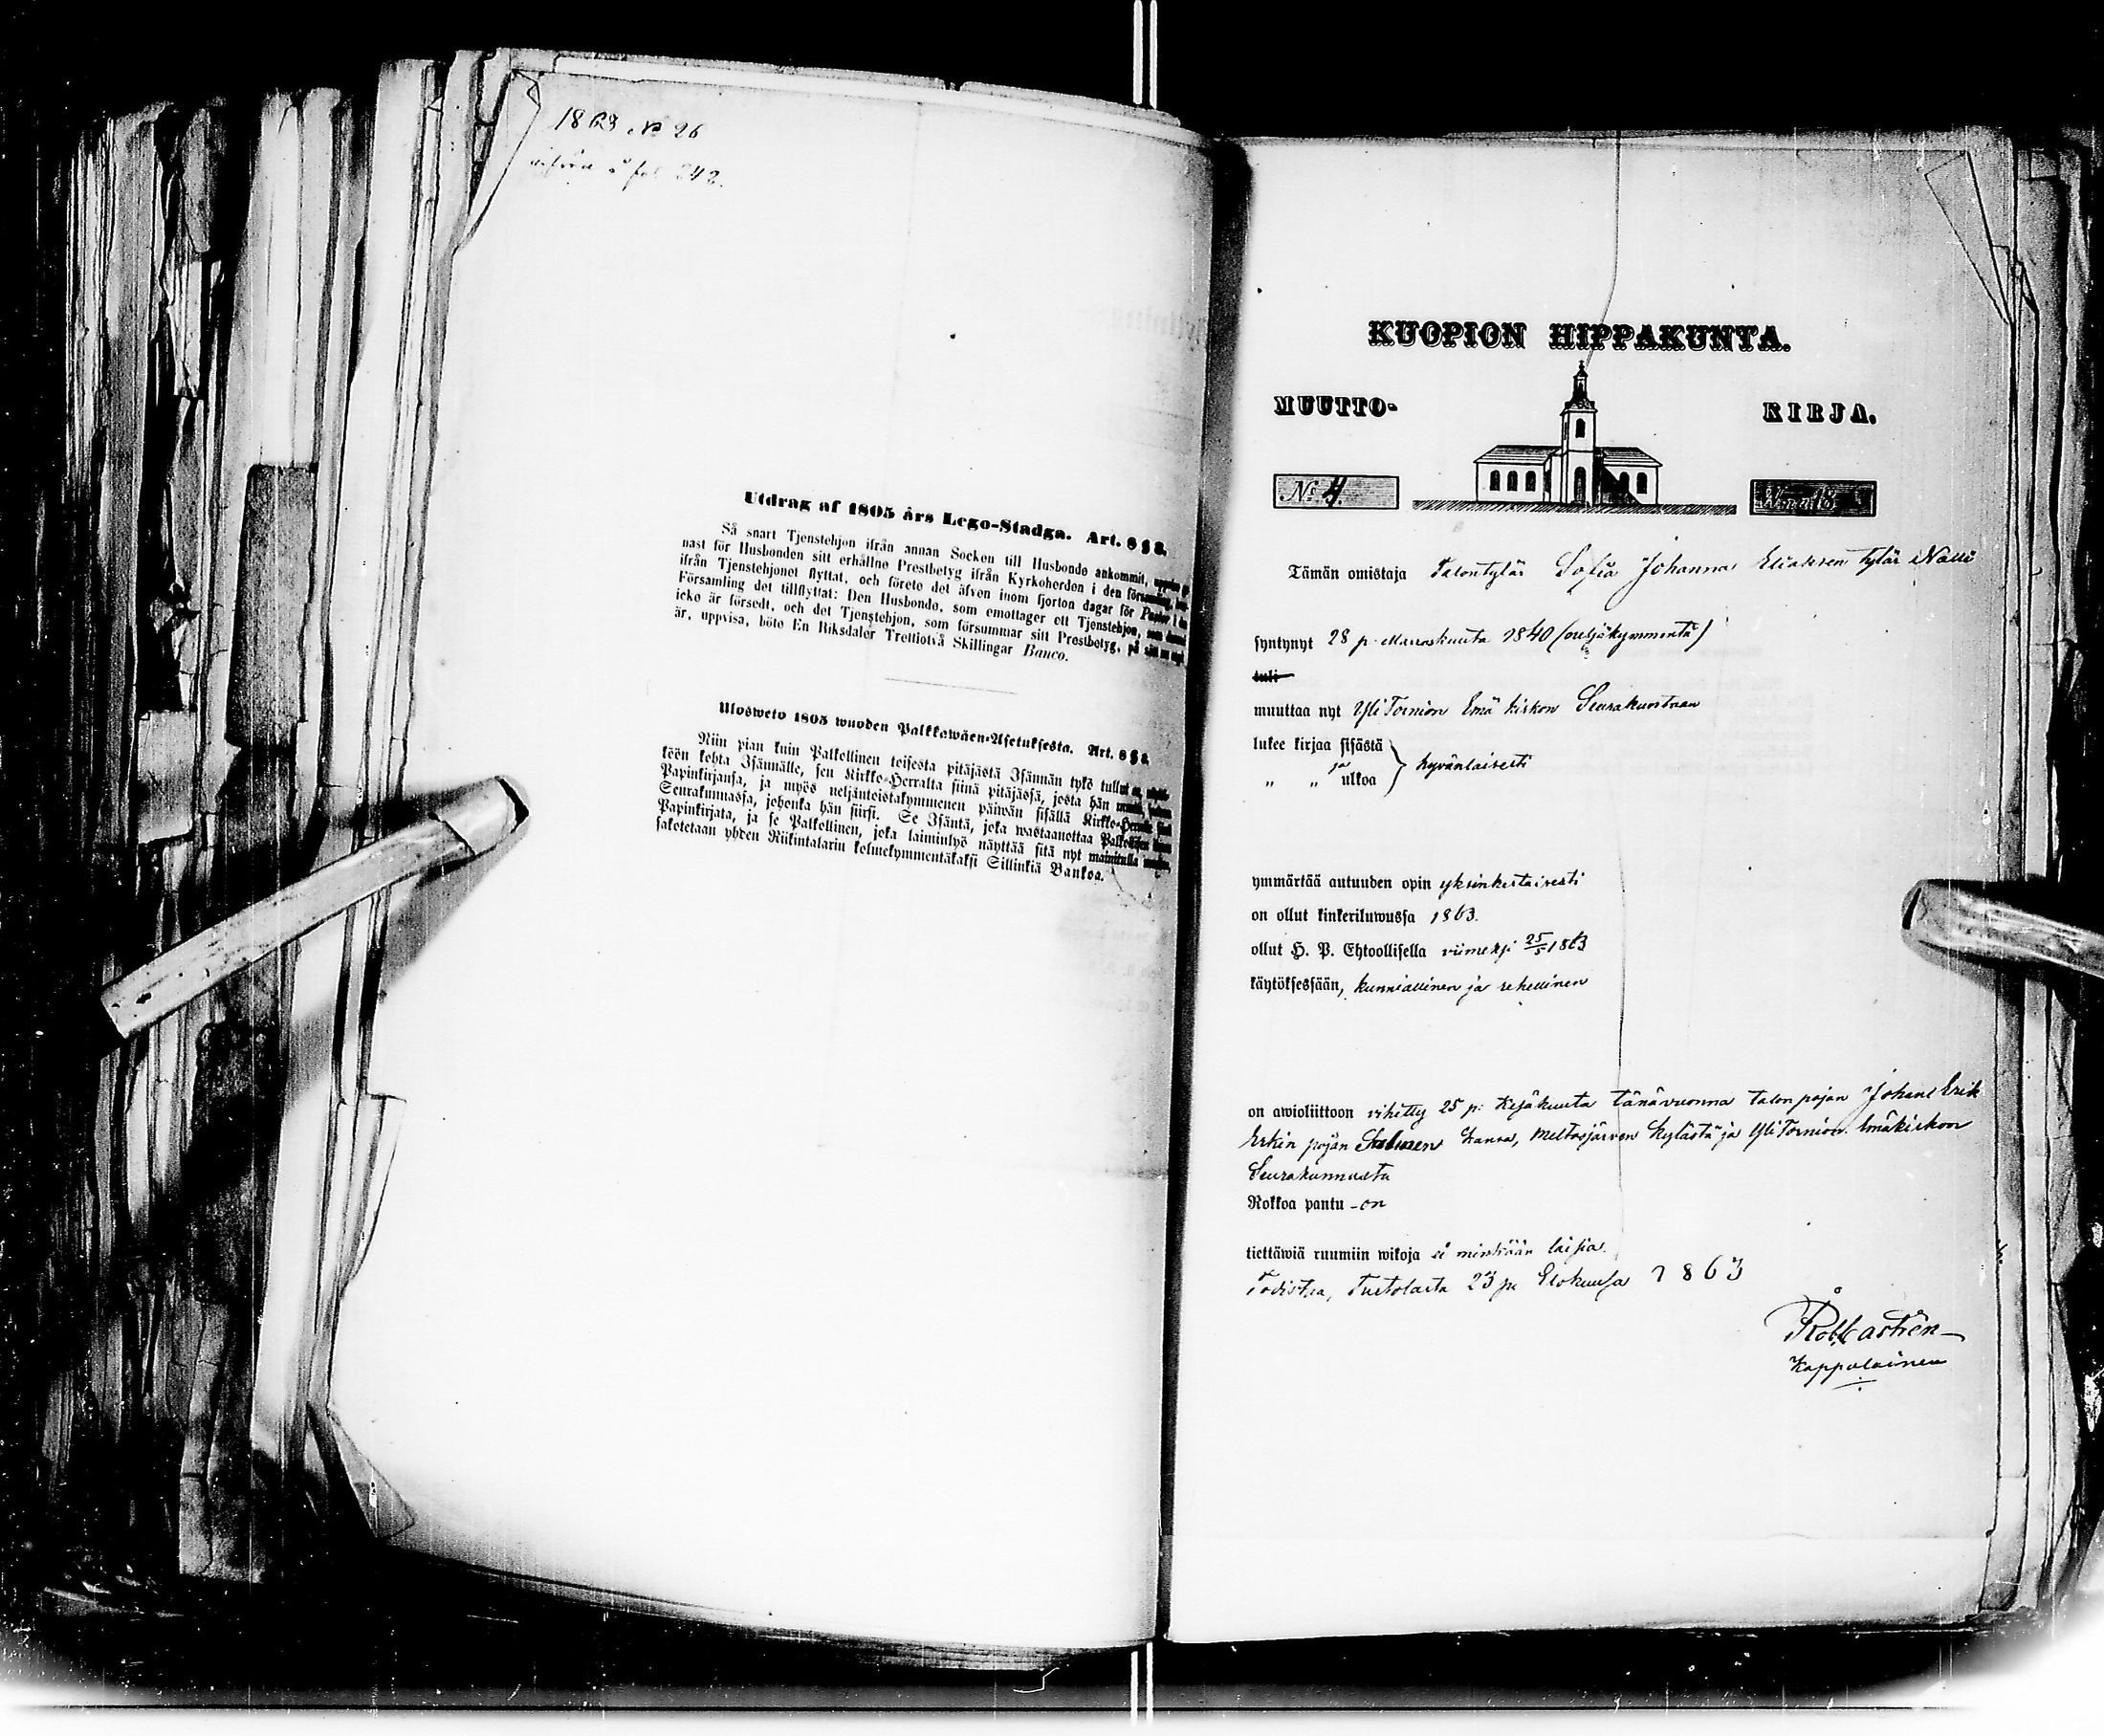 1863 No 26
införd å fol 242.
Utdrag af 1805 års Lego-Stadga. Art. 8 § 8.
Så snart Tjenstehjon ifrån annan Socken till Husbonde ankommit,
nast för Husbonden sitt erhållne Prestbetyg ifrån Kyrkoherden i den
ifrån Tjenstehjonet flyttat, och förete det äfven inom fjorton dagar för Pastor i
Församling det tillflyttat: Den Husbonde, som emottager ett Tjenstehjon,
icke är försedt, och det Tjenstehjon, som försummar sitt Prestbetyg, på
är, uppvisa, böte En Riksdaler Trettiotvå Skillingar Banco.
Uloswеto 1805 wuoden Palkkawäen-Asetuksesta. Art. 8 § 8.
Niin pian kuin Palkollinen toisesta pitäjästä Isännän tykö tullut on,
köön kohta Isännälle, sen Kirkko-Herralta siinä pitäjässä, josta hän
Papinkirjansa, ja myös neljäntoistakymmenen päiwän sisällä Kirkko-Herralle
Seurakunnassa, johonka hän siirsi. Se Isäntä, joka wastaanottaa Palkollisen
Papinkirjata, ja se Palkollinen, joka laiminlyö näyttää sitä nyt mainitulla
sakotetaan yhden Riikintalarin kolmekymmentäkaksi Sillinkiä Bankoa.
KUOPION HIPPAKUNTA.
MUUTTO- KIRJA.
No 4.
Tämän omistaja Talontytär Sofia Johanna Eliaksen tytär Nalli
syntynyt 28 p. Marraskuuta 1840 (neljäkymmentä)
tuli
muuttaa nyt Yli Tornion Emä kirkon Seurakuntaan
lukee kirjaa sisästä
" " ja ulkoa hyvänlaisesti
ymmärtää autuuden opin yksinkertaisesti
on ollut kinkeriluwussa 1863.
ollut H. P. Ehtoollisella viimeksi 25/5 1863
käytöksessään, kunniallinen ja rehellinen
on awioliittoon vihetty 25 p: Kesäkuuta tänävuonna talonpojan Johan Erik
Erkin pojan kanssa, Meltosjärven kylästä ja Yli Tornion Emäkirkon
Seurakunnasta
Rokkoa pantu - on
tiettäwiä ruumiin wikoja ei minkään laisia.
Todistaa, Turtolasta 23 p. Elokuusa 1863
Kappalainen